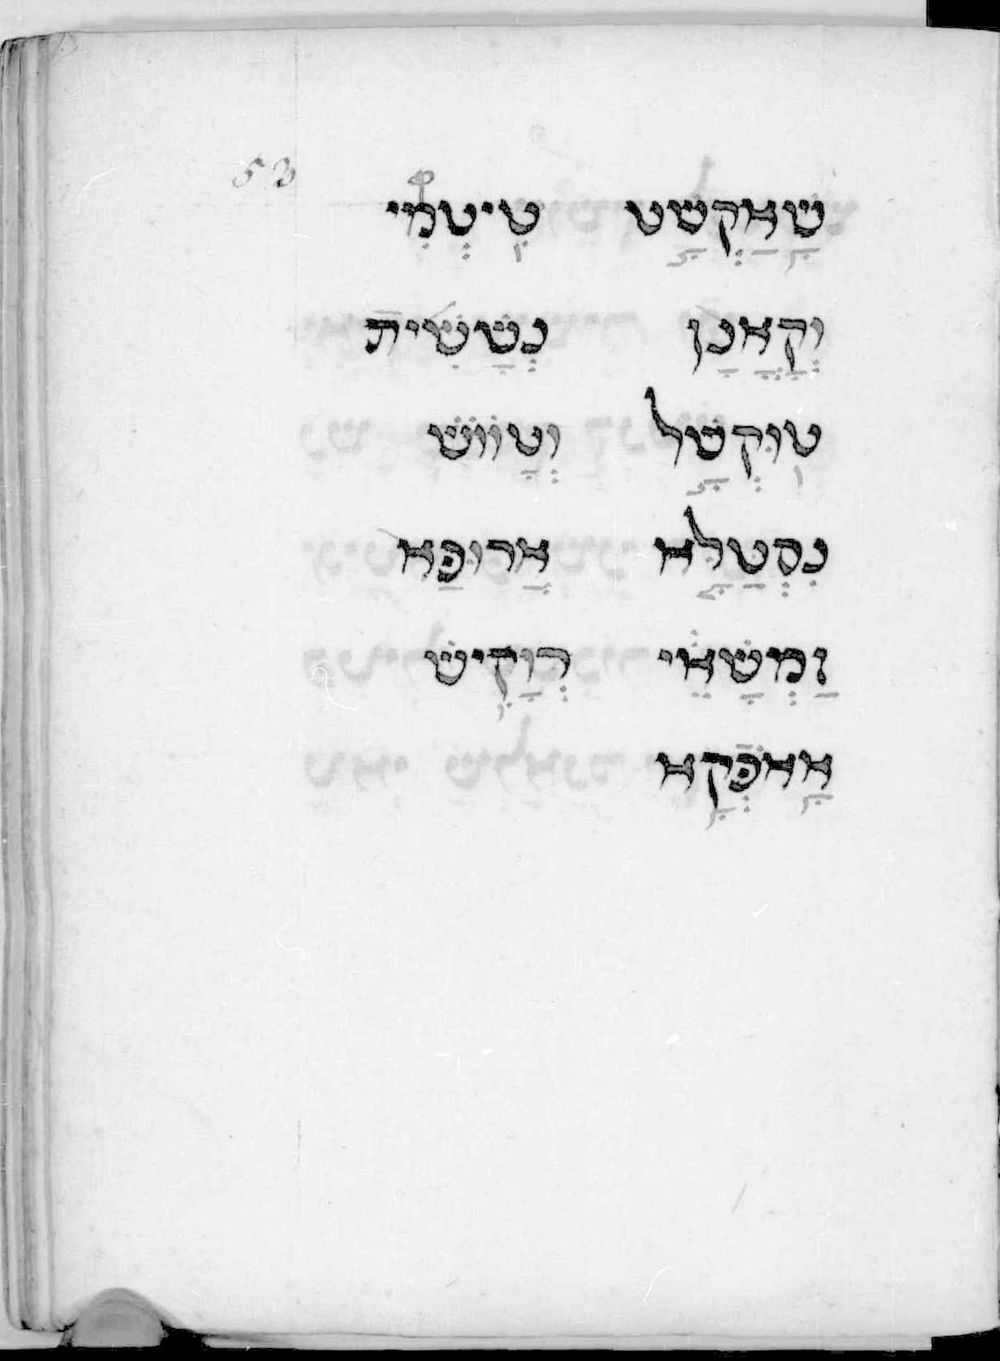 53
שַׁאַקְשַׁט טִיטְמִי
וְקָאֳנַן נְשָׁשִׁית
טוּקְשַׁל וְטָווֹשׁ
נִסְטַלַא אֲרוּפַּא
זַמְשָׁאֵי רְוָקִישׁ
אַאפְּקָא